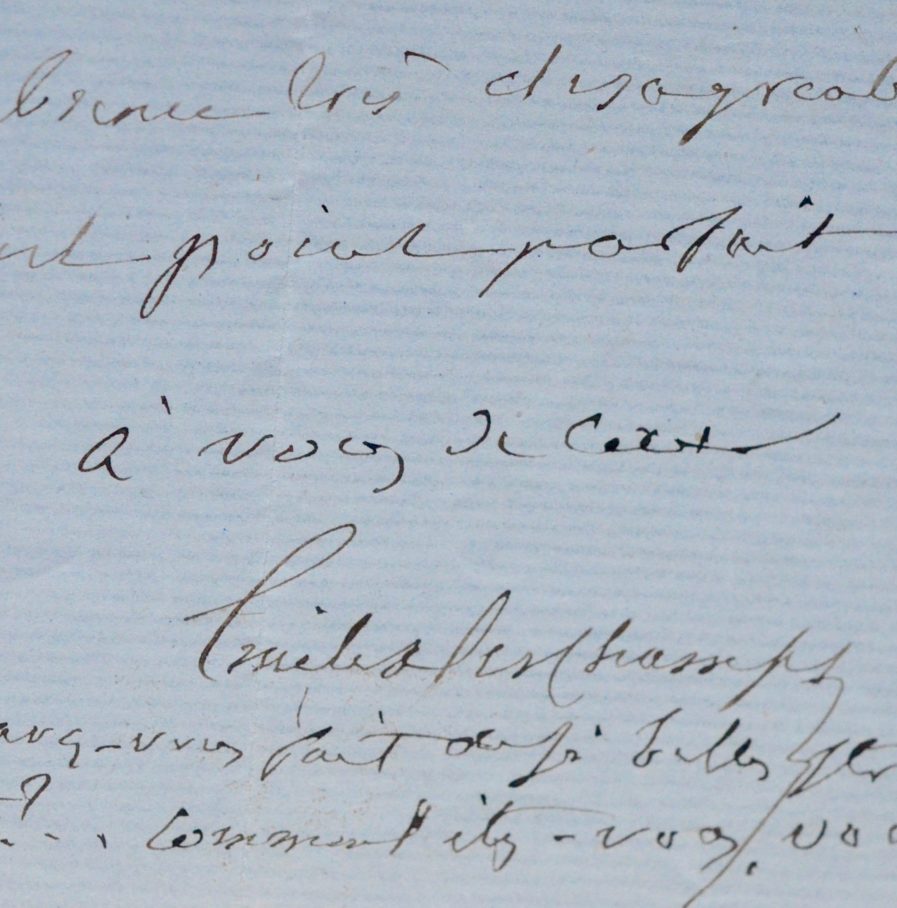 très desagréab
point parfait
à vous de cœur
Emile Deschamps
avez-vous fait de si belles
?... comment êtes-vous, vou